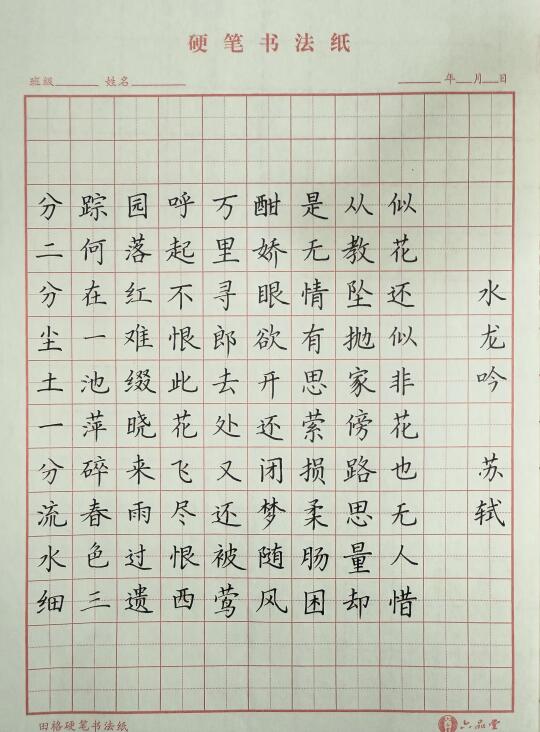 硬笔书法纸
班级 姓名 年 月 日
水龙吟 苏轼
似花还似非花也无人惜
从教坠抛家傍路思量却
是无情有思萦损柔肠困
酣娇眼欲开还闭梦随风
万里寻郎去处又还被莺
呼起不恨此花飞尽恨西
园落红难缀晓来雨过遗
踪何在一池萍碎春色三
分二分尘土一分流水细
田格硬笔书法纸
六品堂